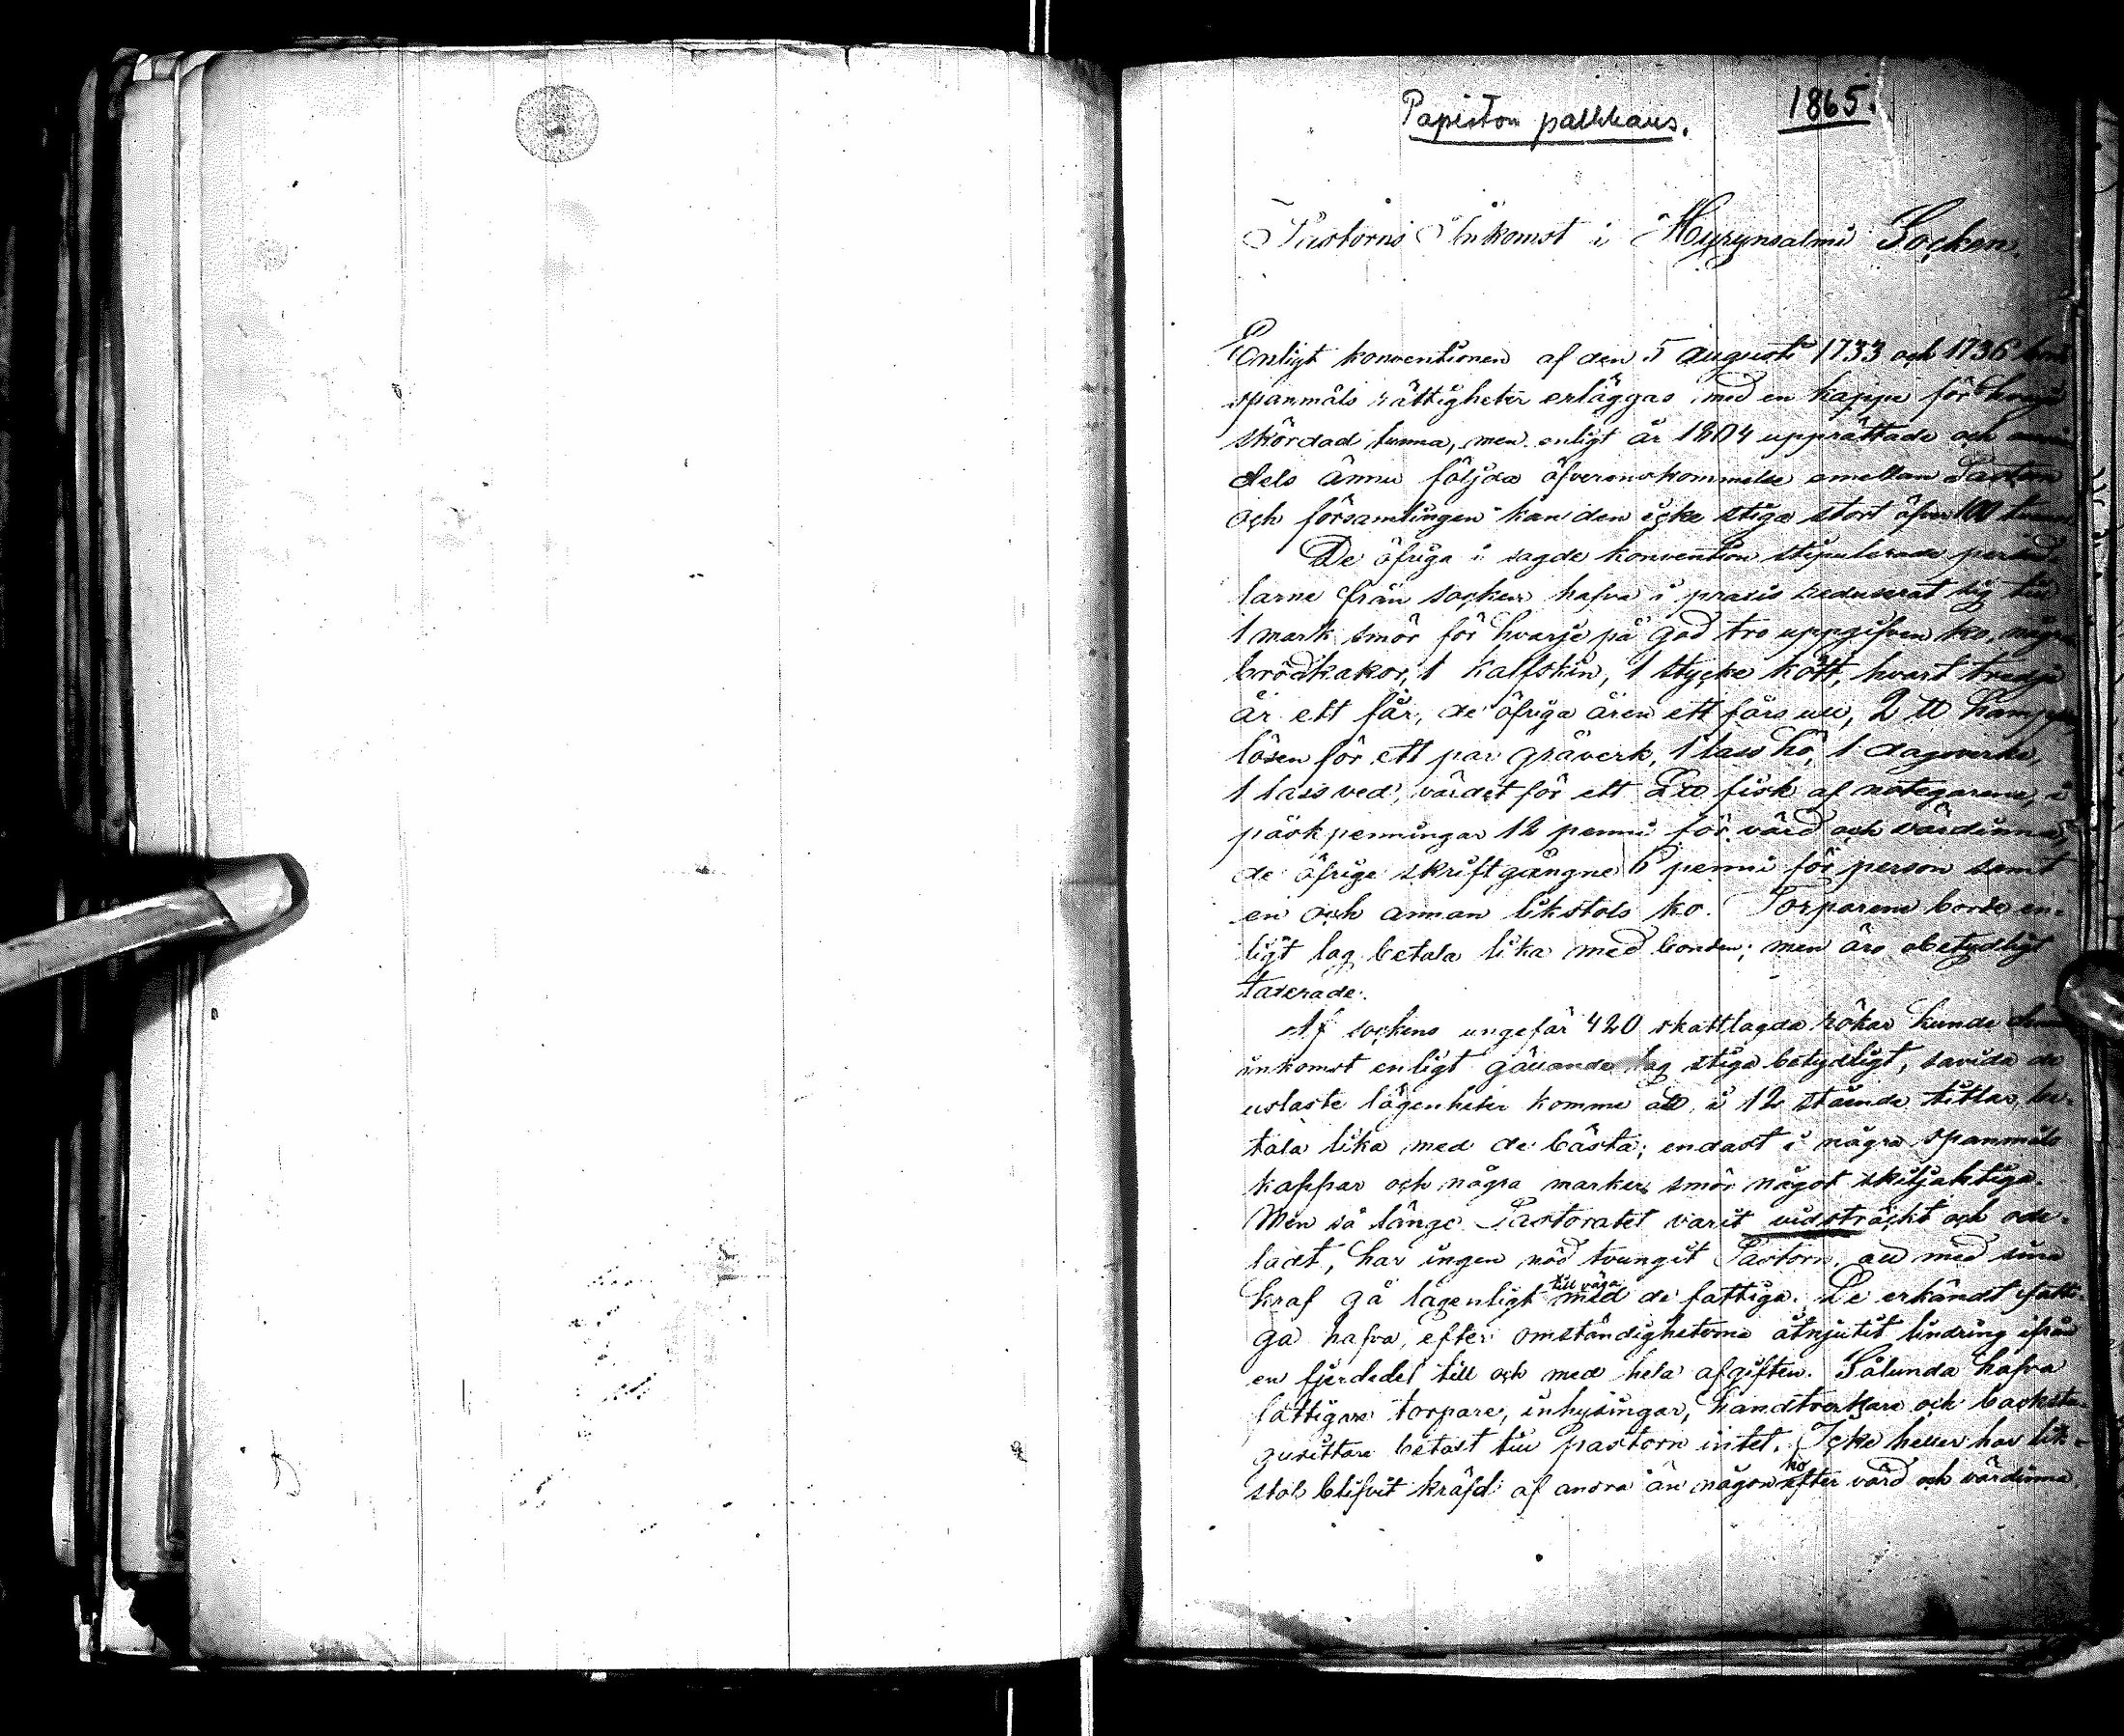 Papiston palkkaus. 1865.
Pastorns Inkomst i Hyrynsalmi Socken.
Enligt konventionen af den 5 augusti 1733 och 1736 bord
spanmåls rättigheter erläggas med en kappe för hvarje
skördad tunna, men enligt år 1804 upprättade och
dels ännu följda öfverenskommelse emellan Pastorn
och församlingen kan den icke stiga stort öfver 100 tunnor.
De öfriga i sagde konvention stipulerade persed-
larne från socken hafva i praxis reduserat sig till
1 mark smör för hvarje på god tro uppgifven ko, några
brödkakor, 1 kalfskin, 1 stycke kött, hvart tredje
år ett får, de öfriga åren ett fårs ull, 2 ℔ hampa,
lösen för ett par gråverk, 1 lass hö, 1 dagsverke,
1 lass ved, värdet för ett L℔ fisk af notegarene, i
påsk penningar 12 penni för värd och värdinna,
de öfrige skriftgångne 6 penni för person samt
en och annan likstols ko. Torparene borde en-
ligt lag betala lika med bonden; men äro obetydligt
taxerade.
Af sockens ungefär 420 skattlagda rökar kunde denna
inkomst enligt gällande lag stiga betydligt, savida de
uslaste lägenheter komme att i 12 stående titlar be-
tala lika med de bästa; endast i några spanmåls
kappar och några marker smör något skiljaktiga.
Men så länge Pastoratet varit vidsträckt och ode-
ladt, har ingen nöd tvungit Pastorn, att med sina
kraf gå lagenligt till väga med de fattiga. De erkändt fatti-
ga hafva, efter omständigheterna åtnjutit lindring ifrån
en fjerdedel till och med hela afgiften. Sålunda hafva
fattigare torpare, inhysingar, handtverkare och backstu-
gusittare betalt till pastorn intet. Icke heller har lik-
stol blifvit kräfd af andra än någon ko efter värd och värdinna.